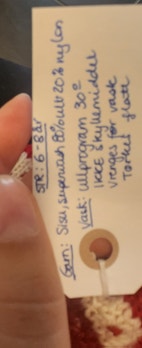 STR: 6-8 år
Garn: Sisu, superwash 80% ull 20% nylon
Vask: ullprogram 30°
IKKE skyllemiddel
vrenges før vask
Tørkes flatt